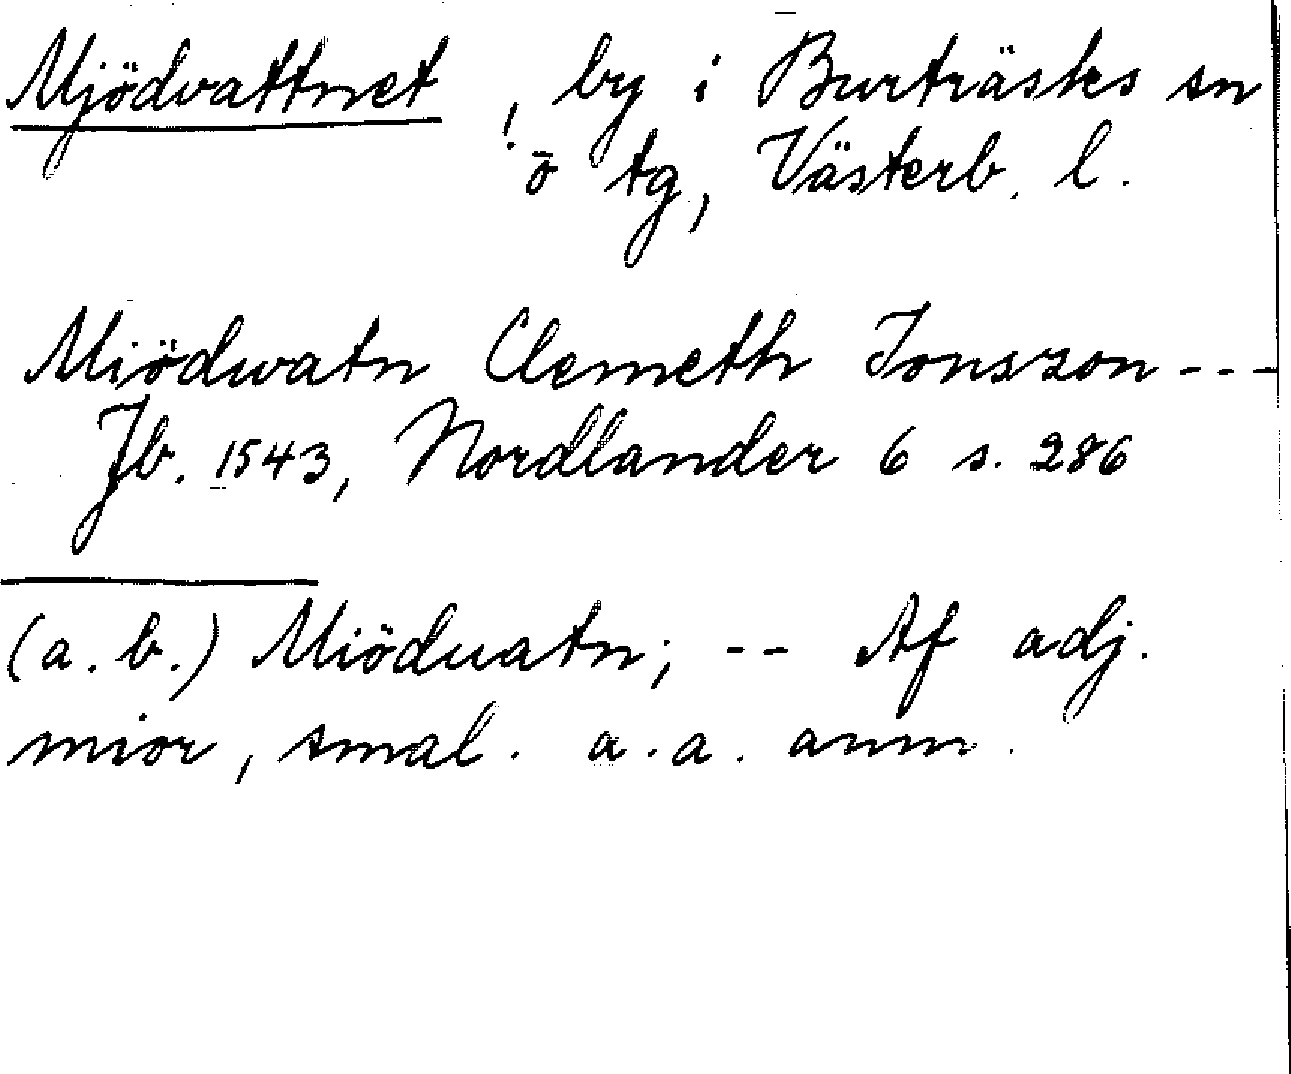 Mjödvattnet, by i Burträsks sn
! ö tg, Västerb. l.
Miödwatn Clemeth Jonszon ---
Jb. 1543, Nordlander 6 s. 286
(a. b.) Miöduatn; -- Af adj.
mior, smal. a. a. anm.